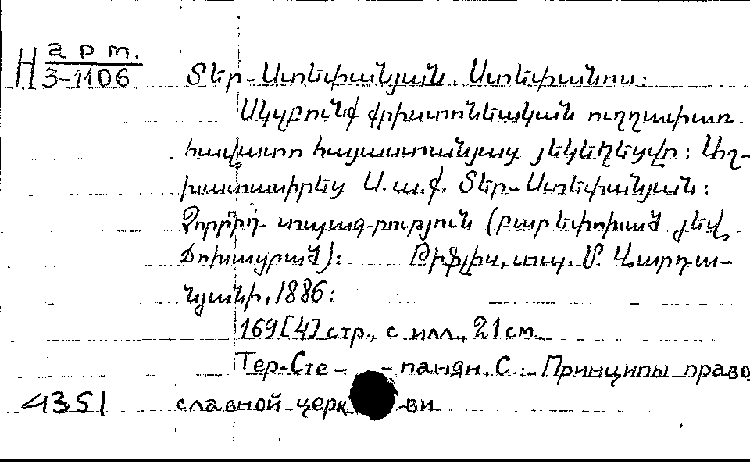 H арт.
3-1106
Տեր-Ստեփանյան, Ստեփանոս:
Սկզբունք քրիստոնեական ուղղափառ
հավատո հայաստանյայց յեկեղեցվո: Աշ-
խատասիրեց Ս. ա. ք. Տեր-Ստեփանյան:
Չորրորդ տպագրություն (բարեփոխած յեվ
փոխայրած): Թիֆլիս, տպ. Մ. Վարդա-
նյանի, 1886:
169[4] стр., с илл., 21 см.
Тер-Сте-панян, С. Принципы право
4351 славной церкви